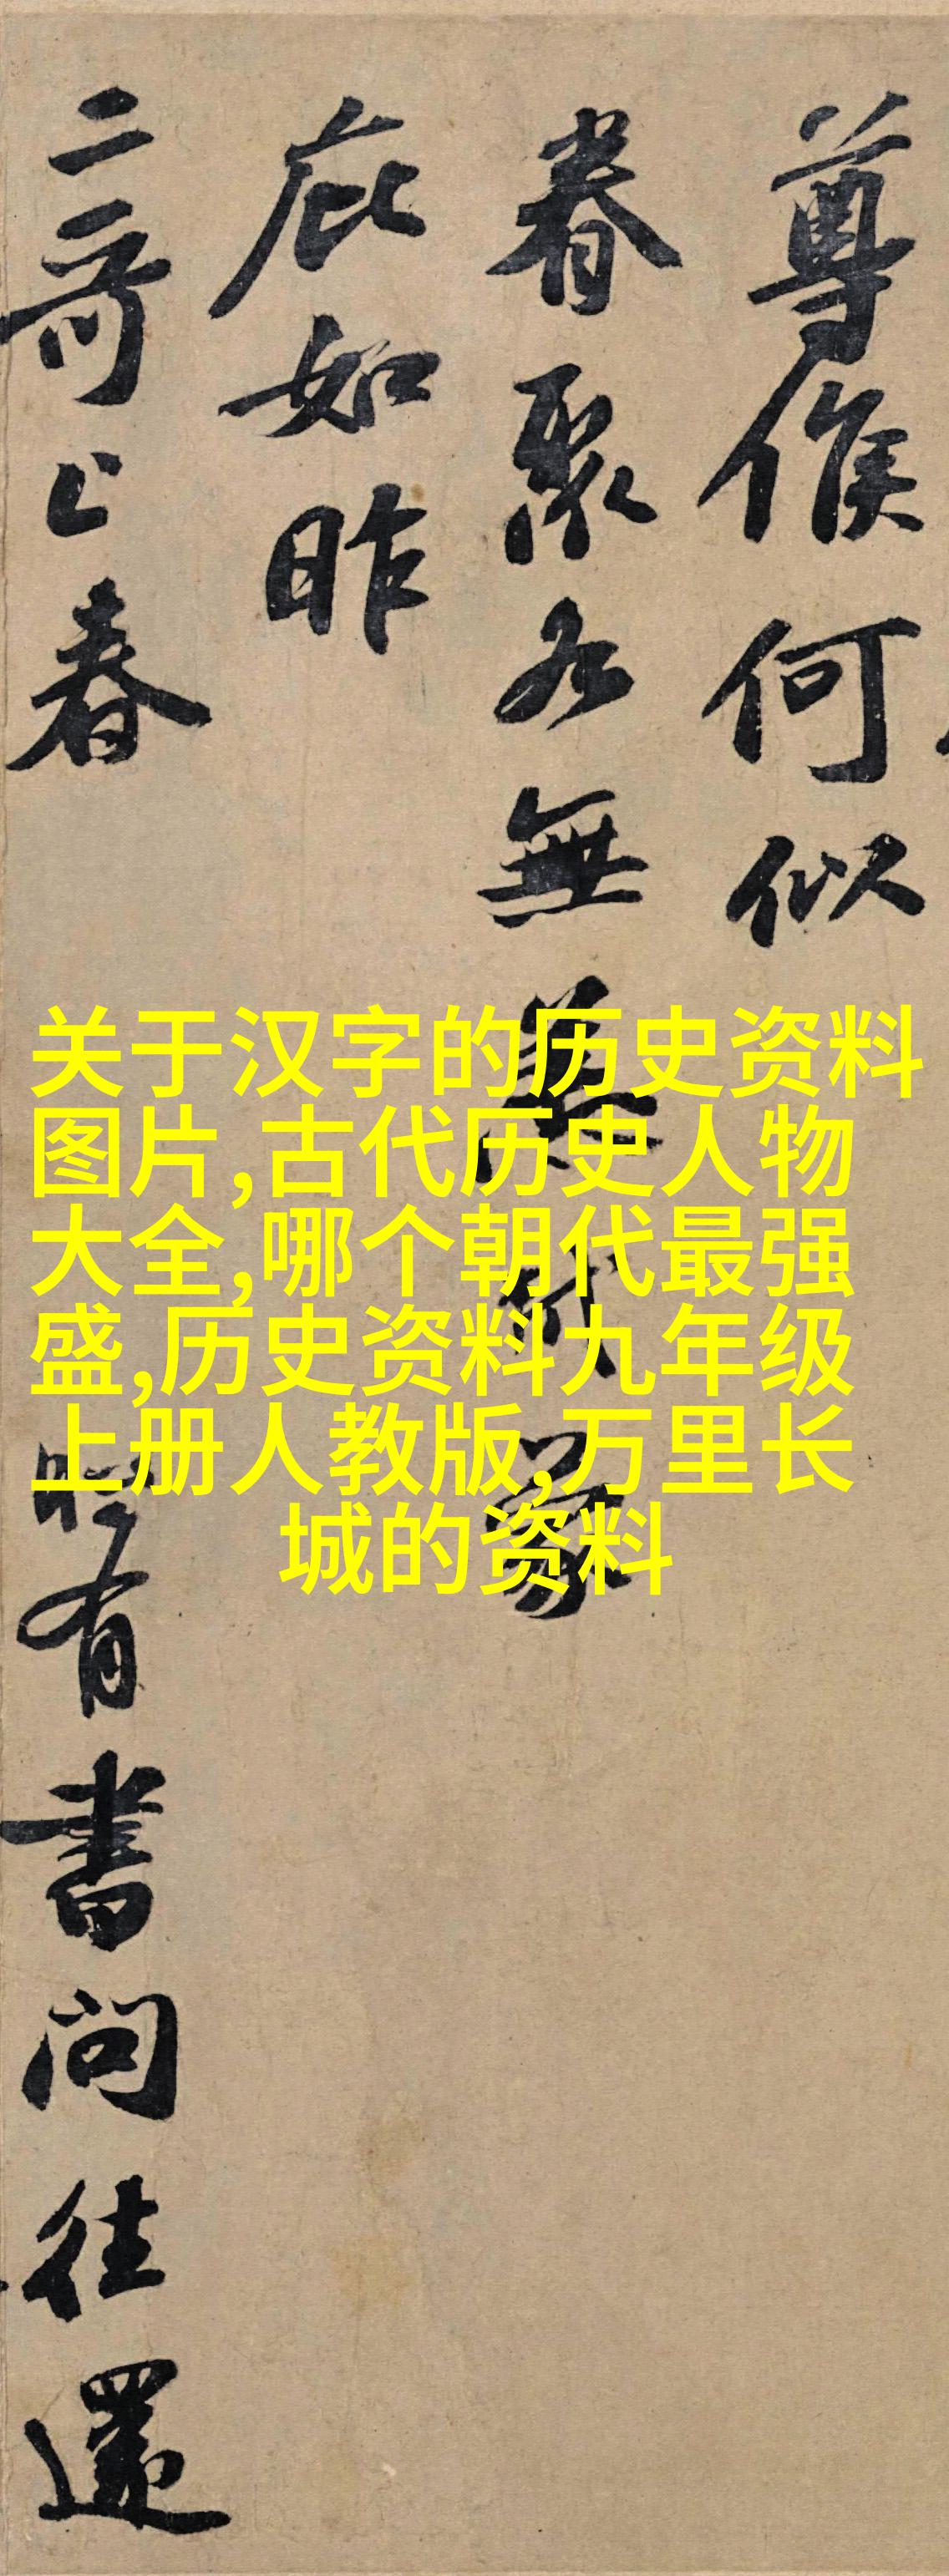 尊候何似
眷聚各無恙代蒙
庇如昨
二哥上春
時有書問往還
关于汉字的历史资料
图片,古代历史人物
大全,哪个朝代最强
盛,历史资料九年级
上册人教版,万里长
城的资料